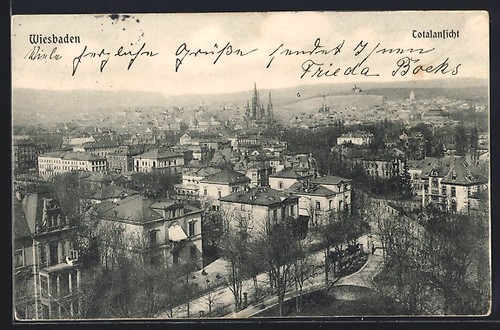 Wiesbaden
Totalansicht
Viele herzliche Grüße sendet Ihnen
Frieda Bocks